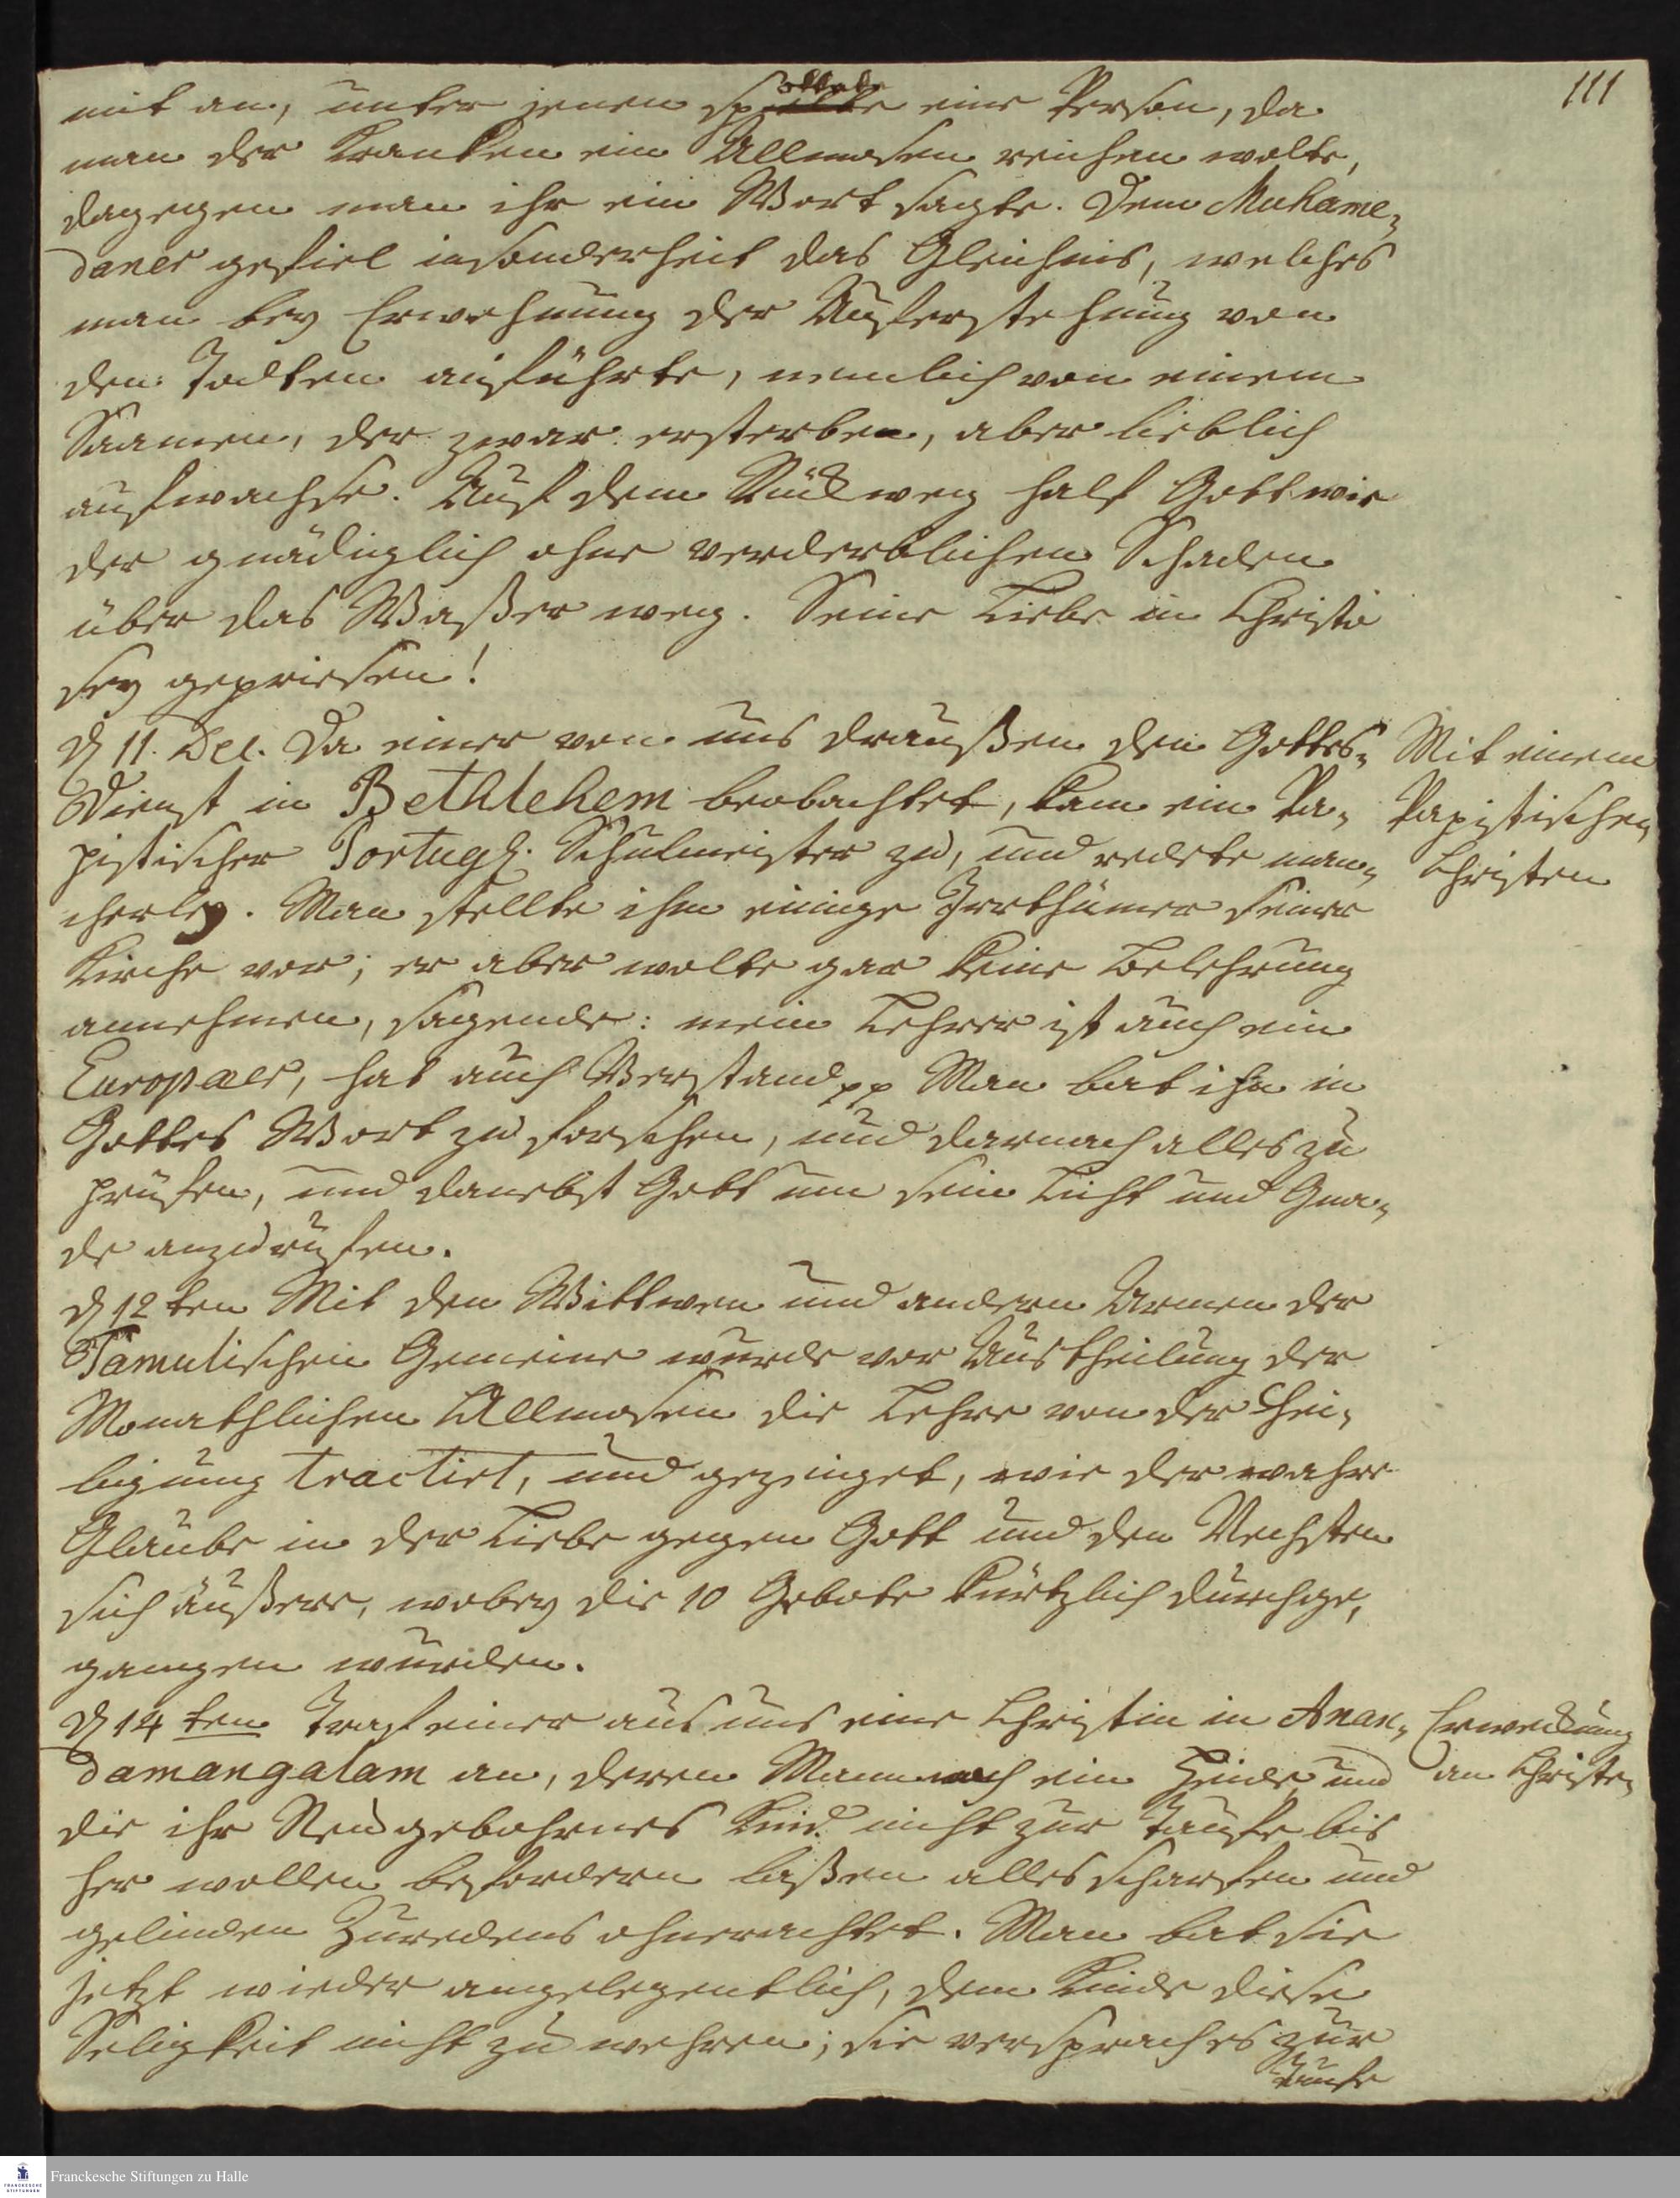 111
mit an, unter jenen spottete eine Person, da
man der Kranken ein Allmosen reichen wolte,
dagegen man ihr ein Wort sagte. Dem Muhame¬
daner gefiel insonderheit das Gleichnis, welches
man bey Erwehnung der Auferstehung von
den Todten anführte, nemlich von einem
Saamen, der zwar ersterbe, aber lieblich
aufwachse. Auf dem Rückweg half Gott wie
der gnädiglich ohne verderblichen Schaden
über das Waßer weg. Seine Liebe in Christo
sey gepriesen!
D 11. Dec. Da einer von uns draußen den Gottes¬
Dienst in Bethlehem beobachtet, kam ein Pa¬
pistischer Portugs. Schulmeister zu, und redete man¬
cherley. Man stellte ihm einige Irrthümer seiner
Kirche vor; er aber wolte gar keine Belehrung
annehmen, sagende: mein Lehrer ist auch ein
Europaeer, hat auch Verstand pp Man bat ihn in
Gottes Wort zu forschen, und darnach alles zu
prüfen, und danebst Gott um sein Licht und Gna¬
de anzurufen.
Mit einem
Papistischen
Christen
D 12ten Mit den Wittwen und andern Armen der
Tamulischen Gemeine wurde vor Austheilung der
Monathlichen Allmosen die Lehre von der Hei¬
ligung tractirt, und gezeiget, wie der wahre
Glaube in der Liebe gegen Gott und den Nechsten
sich äußere, wobey die 10 Gebote kürtzlich durchge¬
gangen wurden.
D 14ten Traf einer aus uns eine Christin in Anan¬
damangalam an, deren Mann noch ein Heide, und
die ihr Neugebohrnes Kind nicht zur Taufe bis
her wollen befördern laßen alles scharfen und
gelinden Zuredens ohnerachtet. Man bat sie
jetzt wieder angelegentlich, dem Kinde diese
Seligkeit nicht zu wehren; sie versprach es zur
Taufe
Erweckung
an Christen
Franckesche Stiftungen zu Halle